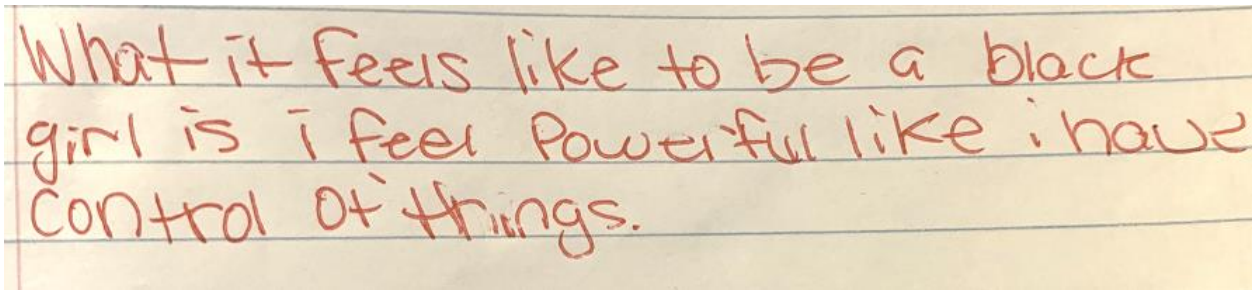 What it feels like to be a black
girl is i feel Powerful like i have
control of things.